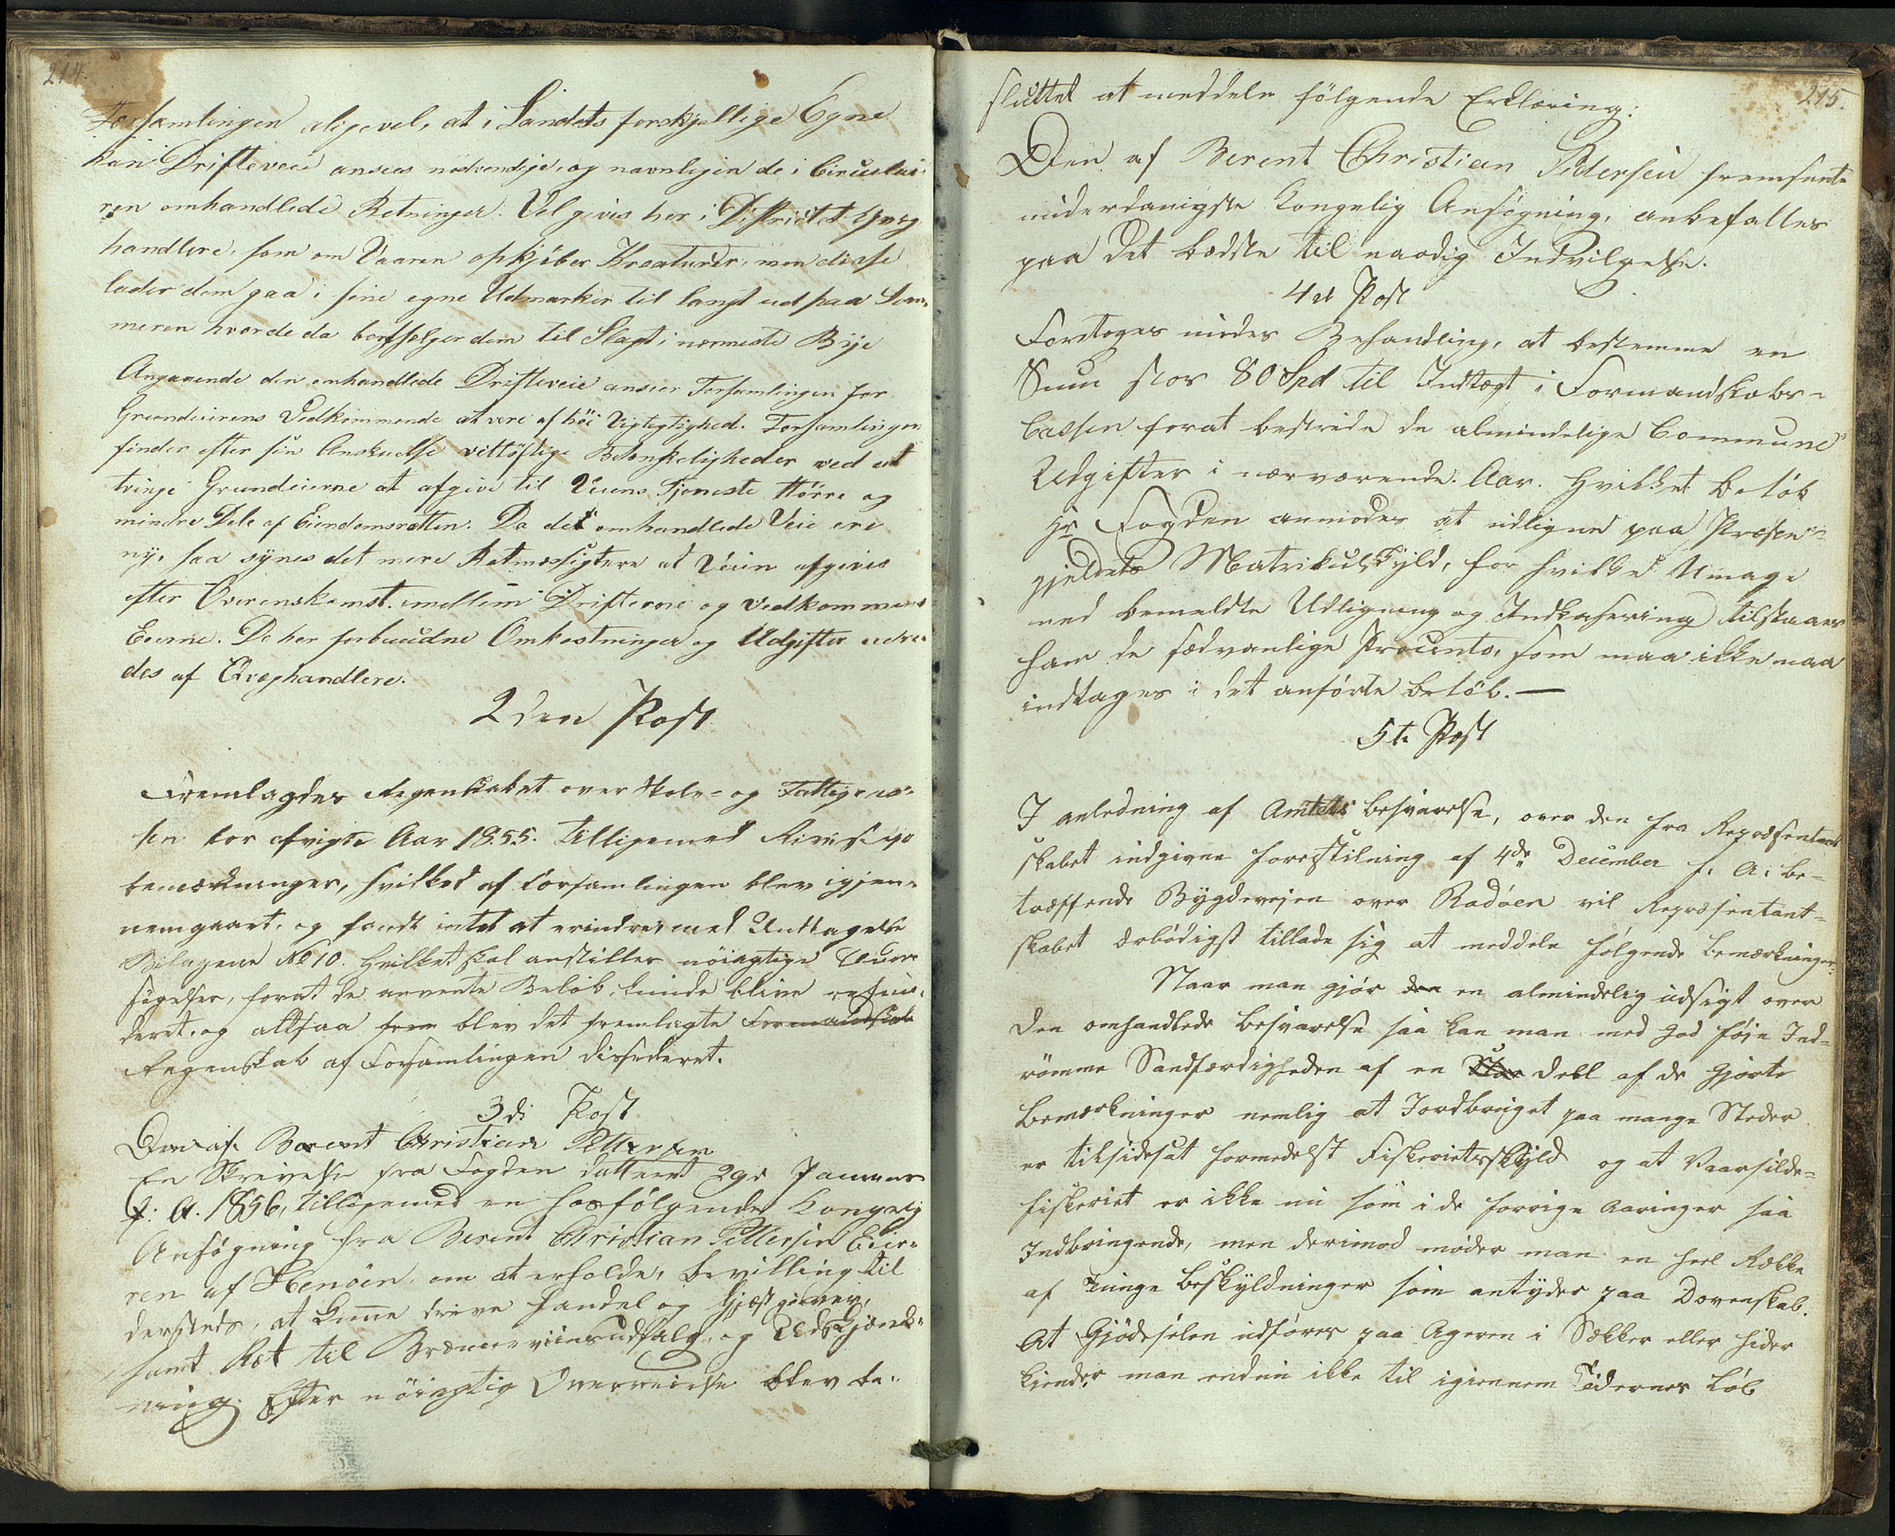 214.
Forsamlingen aligevel, at i Landets forskjellige Egne
kan Drifteveie ansees nødvendige, og navnligen de i Circulai-
ren omhandlede Retninger. Vel gives her i Distriktet Qvæg
handlere, som om Vaaren opkjøber Kreaturer, men disse
lader dem gaa i sine egne Udmarker til langt ud paa Som-
meren hvor de da bortsælger dem til Slagt i nærmeste Bye
Angaaende den omhandlede Drifteveie anseer Forsamlingen for
Grundeierens Vedkommende at være af høi Vigtigtighed. Forsamlingen
finder efter sin Anskuelse vittløftige Betænkeligheder ved at
tvinge Grundeierne at afgive til Veiens Tjeneste større og
mindre Dele af Eiendomsretten. Da det omhandlede Veie ere
ny, saa synes det mere Retmæssigtere at Veien afgives
efter Overenskomst imellem Drifterne og Vedkommende
Eierne. De her forbundne Omkostninger og Udgifter udre-
des af Qvæghandlere.
2den Post
Fremlagdes Regenskabet over Skole- og Fattigvæ-
sen for afvigte Aar 1855. tilligemed Revisions
bemærkninger, hvilket af Forsamlingen blev igjen-
nemgaaet, og fandt intet at erindre med Undtagelse
Bilagene No 10. Hvilket skal anstilles nøiagtige Under
søgelser, forat de anvente Beløb kunde blive refun-
deret, og altsaa frem blev det fremlagte Formandskab
Regenskab af Forsamlingen dissideret.
3di Post
Den af Berent Christian Pettersen
En Skrivelse fra Fogden datteret 29de Januar
f: A. 1856, tilligemed en hosfølgende Kongelig
Ansøgning fra Berent Christian Pettersen Eier-
ren af Henøen, om at erholde, bevilling til
dersteds, at kunne drive Handel og Gjæstgiveri,
samt Ret til Brændeviinsudsalg, og Udskjænk-
ning. Efter nøiagtig Overveielse blev be-
215.
sluttet at meddele følgende Erklæring:
Den af Berent Christian Pedersen fremsente
underdanigste Kongelig Ansøgning, anbefalles
paa det bedste til naadig Indvilgelse.
4de Post
Foretoges under Behandling, at bestemme en
Sum stor 80 Spd til Indtægt i Formandskabs-
Cassen forat bestride de almindelige Commune
Udgifter i nærværende Aar. Hvilket beløb
Hr Fogden anmodes at udligne paa Præste-
gjeldets Matrikulskyld, for hvilke Umage
med bemeldte Udligning og Indkasering tilstaaes
ham de sedvanlige Procento, som maa ikke maa
indtages i det anførte beløb. —
5te Post
I anledning af Amtets besvarelse, over den fra Repræsentant
skabet indgivne forestilning af 4de December f. A. be-
træffende Bygdeveien over Radøen vil Repræsentant-
skabet ærbødigst tillade sig at meddele følgende bemærkninger:
Naar man gjør den en almindelig udsigt over
den omhandlede besvarelse saa kan man med god føie Ind-
rømme Sandfærdigheden af en Stor deel af de gjorte
bemærkninger nemlig at Jordbruget paa mange Steder
er tilsidesat formedelst Fiskerietsskyld og at Vaarsilde-
fiskeriet er ikke nu som i de forrige Aaringer saa
Indbringende, men derimod møder man en heel Række
af tunge beskyldninger som antyder paa Dovenskab.
At Gjødselen udføres paa Ageren i Sækker eller hider
kiender man endnu ikke til igiennem Tidernes Løb